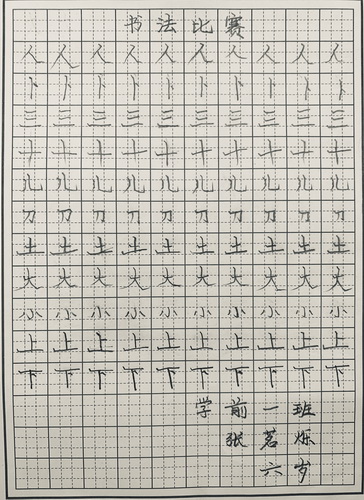 书法比赛
人人人人人人人人人人
卜卜卜卜卜卜卜卜卜卜
三三三三三三三三三三
十十十十十十十十十十
儿儿儿儿儿儿儿儿儿儿
刀刀刀刀刀刀刀刀刀刀
土土土土土土土土土土
大大大大大大大大大大
小小小小小小小小小小
上上上上上上上上上上
下下下下下下下下下下
学前一班
张茗烁
六岁